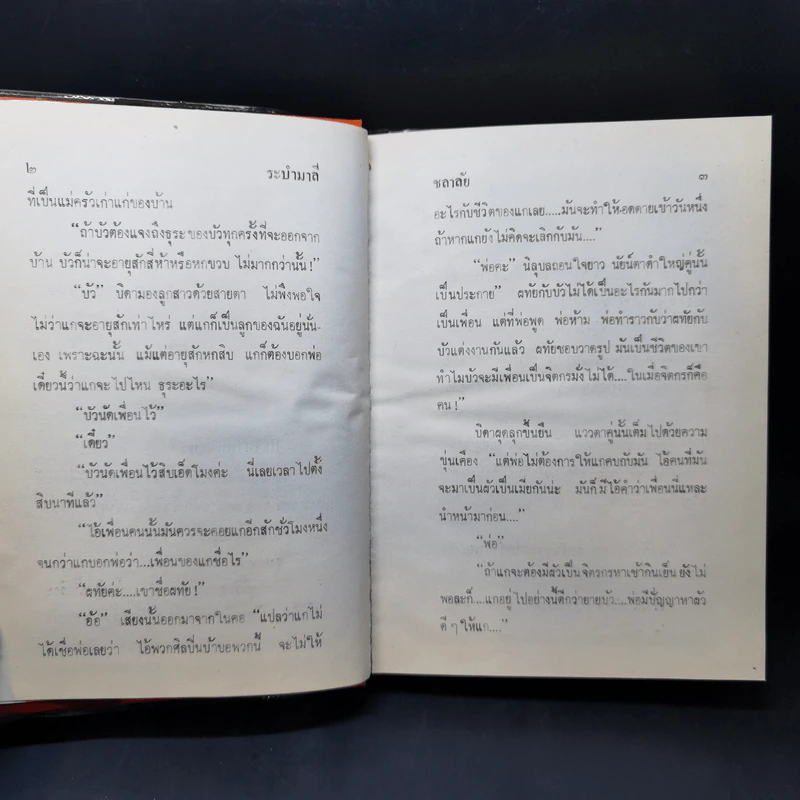 ๒ ระบำมาลี
ที่เป็นแม่ครัวเก่าแก่ของบ้าน
“ถ้าบัวต้องแจงถึงธุระของบัวทุกครั้งที่จะออกจาก
บ้าน บัวก็น่าจะอายุสักสี่ห้าหรือหกขวบ ไม่มากกว่านั้น!”
“บัว” บิดามองลูกสาวด้วยสายตา ไม่พึงพอใจ
ไม่ว่าแกจะอายุสักเท่าไหร่ แต่แกก็เป็นลูกของฉันอยู่นั่น-
เอง เพราะฉะนั้น แม้แต่อายุสักหกสิบ แกก็ต้องบอกพ่อ
เดี๋ยวนี้ว่าแกจะไปไหน ธุระอะไร”
“บัวนัดเพื่อนไว้”
“เดี๋ยว”
“บัวนัดเพื่อนไว้สิบเอ็ดโมงค่ะ นี่เลยเวลาไปตั้ง
สิบนาทีแล้ว”
“ไอ้เพื่อนคนนั้นมันควรจะคอยแกอีกสักชั่วโมงหนึ่ง
จนกว่าแกบอกพ่อว่า...เพื่อนของแกชื่อไร”
“ผทัยค่ะ....เขาชื่อผทัย!”
“อ้อ” เสียงนั้นออกมาจากในคอ “แปลว่าแกไม่
ได้เชื่อพ่อเลยว่า ไอ้พวกศิลปินบ้าบอพวกนี้ จะไม่ให้
ชลาลัย ๓
อะไรกับชีวิตของแกเลย.....มันจะทำให้อดตายเข้าวันหนึ่ง
ถ้าหากแกยังไม่คิดจะเลิกกับมัน....”
“พ่อคะ” นิลุบลถอนใจยาว นัยน์ตาดำใหญ่คู่นั้น
เป็นประกาย” ผทัยกับบัวไม่ได้เป็นอะไรกันมากไปกว่า
เป็นเพื่อน แต่ที่พ่อพูด พ่อห้าม พ่อทำราวกับว่าผทัยกับ
บัวแต่งงานกันแล้ว ผทัยชอบวาดรูป มันเป็นชีวิตของเขา
ทำไมบัวจะมีเพื่อนเป็นจิตกรมั่งไม่ได้....ในเมื่อจิตกรก็คือ
คน!”
บิดาผุดลุกขึ้นยืน แววตาคู่นั้นเต็มไปด้วยความ
ขุ่นเคือง “แต่พ่อไม่ต้องการให้แกคบกับมัน ไอ้คนที่มัน
จะมาเป็นผัวเป็นเมียกันน่ะ มันก็มีไอ้คำว่าเพื่อนนี่แหละ
นำหน้ามาก่อน....”
“พ่อ”
“ถ้าแกจะต้องมีผัวเป็นจิตรกรหาเช้ากินเย็น ยังไม่
พอละก็....แกอยู่ไปอย่างนี้ดีกว่ายายบัว....พ่อมีปัญญาหาผัว
ดีๆ ให้แก....”